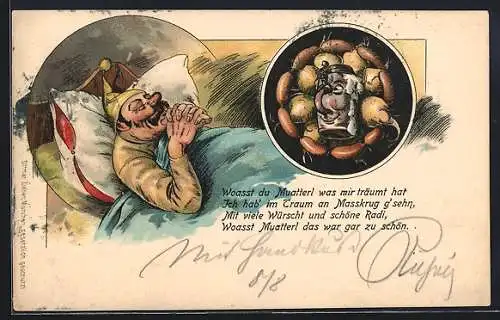 Woasst du Muatterl was mir träumt hat
Ich hab' im Traum an Masskrug g'sehn,
Mit viele Würscht und schöne Radi,
Woasst Muatterl das war gar zu schön. .
Mit Handkuß
8/8